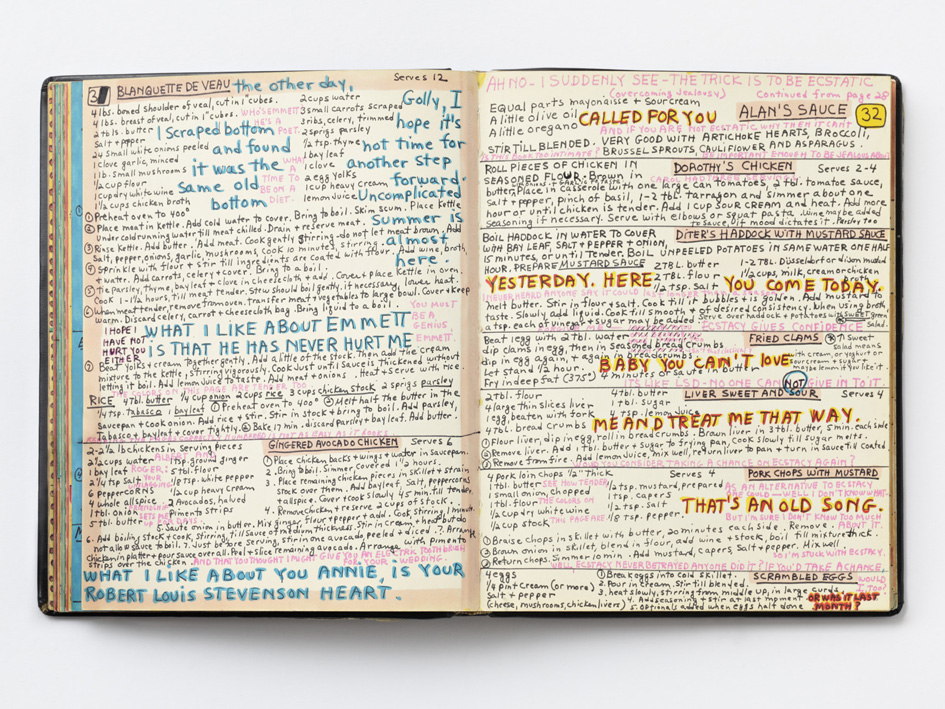 3
BLANQUETTE DE VEAU the other day,
Serves 12
4 lbs. boned shoulder of veal, cut in 1" cubes.
4 lbs. breast of veal, cut in 1" cubes.
2 tbls. butter
Salt + pepper
24 small white onions peeled
1 clove garlic, minced
1 lb. small mushrooms
1/2 cup flour
1 cup dry white wine
1 1/2 cups chicken broth
2 cups water
3 small carrots scraped
2 ribs, celery, trimmed
2 sprigs parsley
1/2 tsp. thyme
1 bay leaf
1 clove
2 egg yolks
1 cup heavy cream
lemon juice
I scraped bottom
and found
it was the
same old
bottom
WHO'S EMMETT
HE'S A
POET.
WHAT
TIME TO
BE ON A
DIET.
Golly, I
hope it's
not time for
another step
forward.
Uncomplicated
Summer is
almost
here.
① Preheat oven to 400°
② Place meat in Kettle. Add cold water to cover. Bring to boil. Skim scum. Place Kettle
under cold running water till meat chilled. Drain + reserve meat.
③ Rinse Kettle. Add butter. Add meat. Cook gently stirring - do not let meat brown. Add
Salt, pepper, onions, garlic, mushrooms, cook 10 minutes, stirring.
④ Sprinkle with flour + stir till ingredients are coated with flour. Add wine, broth,
+ water. Add carrots, celery + cover. Bring to a boil.
⑤ Tie parsley, thyme, bay leaf + clove in cheesecloth + add. Cover + place Kettle in oven.
Cook 1-1 1/2 hours, till meat tender. Stew should boil gently, if necessary, lower heat.
⑥ When meat tender, remove from oven. transfer meat + vegetables to large bowl. Cover + Keep
warm. Discard celery, carrot + cheesecloth bag. Bring liquid to a boil.
YOU MUST
BE A
GENIUS,
EMMETT.
I HOPE I
HAVE NOT
HURT YOU
EITHER
WHAT I LIKE ABOUT EMMETT
IS THAT HE HAS NEVER HURT ME
⑦ Beat yolks + cream together. Add a little of the stock. Then add the cream
mixture to the Kettle, stirring vigorously. Cook just until sauce is thickened without
letting it boil. Add lemon juice to taste. Add meat + onions. Heat + serve with rice.
THE COLORS ON THIS PAGE ARE TENDER TOO
RICE 4 tbl. butter 1/4 cup onion 2 cups rice 3 cups chicken stock 2 sprigs parsley
1/4 tsp. tabasco 1 bay leaf ① Preheat oven to 400° ② Melt half the butter in the
saucepan + cook onion. Add rice + stir. Stir in stock + bring to boil. Add parsley,
Tabasco + bay leaf + cover tightly. ③ Bake 17 min. discard parsley + bay leaf. Add butter.
GINGERED AVOCADO CHICKEN Serves 6
2-2 1/2 lb chickens in Serving Pieces
2 1/2 cups water
1 bay leaf
2 1/4 tsp. salt
6 peppercorns
4 whole allspice
1 tbl. onion
5 tbl. butter
1 tsp. ground ginger
5 tbl. flour
1/4 tsp. white pepper
1/2 cup heavy cream
2 Avocados, halved
Pimento Strips
① Place chicken backs + wings + water in Saucepan.
Bring to boil. Simmer covered 1 1/2 hours.
2. Bring stock to boil in skillet + strain
3. Place remaining chicken pieces in skillet + strain
stock over them. Add bay leaf, salt, peppercorns
+ allspice. Cover + cook slowly 45 min. till tender.
4. Remove chicken + reserve 2 cups of stock.
5. Saute onion in butter. Mix ginger, flour + pepper + add. Cook, stirring, 1 minute.
6. Add boiling stock + cook, stirring, till sauce of medium thickness. Stir in cream + heat but do
not allow sauce to boil. 7. Just before serving, stir in one avocado, peeled + diced.
chicken in platter + pour sauce over all. Peel + slice remaining avocado. Arrange with pimento
strips over the chicken. AND THAT YOU THOUGHT I MIGHT GIVE YOU AN ELECTRIC TOOTHBRUSH
FOR YOUR WEDDING.
WHAT I LIKE ABOUT YOU ANNIE, IS YOUR
ROBERT LOUIS STEVENSON HEART.
AH NO - I SUDDENLY SEE - THE TRICK IS TO BE ECSTATIC
(overcoming jealousy) Continued from page 28
Equal parts mayonaise + sour cream
A little olive oil
A little oregano
CALLED FOR YOU
ALAN'S SAUCE
32
AND IF YOU ARE NOT ECSTATIC WHY THEN IT CAN'T
STIR TILL BLENDED. VERY GOOD WITH ARTICHOKE HEARTS, BROCCOLI,
BRUSSEL SPROUTS, CAULIFLOWER AND ASPARAGUS.
IS THIS BOOK TOO INTIMATE? BE IMPORTANT ENOUGH TO BE JEALOUS ABOUT
ROLL PIECES OF CHICKEN IN
SEASONED FLOUR. Brown in
DOROTHY'S CHICKEN
Serves 2-4
butter, Place in Casserole with one large can tomatoes, 2 tbl. tomatoe sauce,
Salt + pepper, pinch of basil, 1-2 tbl. tarragon and simmer about one
hour or until chicken is tender. Add 1 cup sour cream and heat. Add more
seasoning if necessary. Serve with elbows or squat pasta. Wine may be added
to sauce, if mood dictates it. Parsley too
BOIL HADDOCK IN WATER TO COVER
WITH BAY LEAF, SALT + PEPPER + ONION,
15 minutes, or until Tender. BOIL UNPEELED POTATOES IN SAME WATER ONE HALF
HOUR. PREPARE MUSTARD SAUCE
DITER'S HADDOCK WITH MUSTARD SAUCE
2 TBL. BUTTER
2 tbl. flour
1/2 tsp. Salt
1-2 TBL. Düsseldorf or dijon mustard
1 1/2 cups, milk, cream or chicken
YESTERDAY. HERE YOU COME TODAY.
Melt butter. Stir in flour + salt. Cook till mixture bubbles + is golden. Add mustard to
taste. Slowly add liquid. Cook till smooth + of desired consistency. When using broth
a tsp. each of vinegar + sugar may be added. Serve over haddock + potatoes with green
Salad.
ECSTASY GIVES CONFIDENCE
Beat 1 egg with 2 tbl. water
dip clams in egg, then in seasoned bread crumbs
in egg again, + again in breadcrumbs
Let stand 1/2 hour.
Fry in deep fat (375°) 4 minutes or saute in butter
FRIED CLAMS
BABY YOU CAIN'T LOVE
ITS LIKE LSD - NO ONE CAN NOT GIVE IN TO IT.
LIVER SWEET AND SOUR Serves 4
2 tbl. flour
4 large thin slices liver
1 egg beaten with fork
4 tbl. bread crumbs
4 tbl. butter
1 tbl. sugar
4 tsp. lemon juice
ME AND TREAT ME THAT WAY.
① Flour liver, dip in egg, roll in bread crumbs. Brown liver in 3 tbl. butter, 5 min. each side
② Remove liver. Add 1 tbl. butter + sugar to frying pan. Cook slowly till sugar melts.
③ Remove from fire. Add lemon juice, mix well, return liver to pan + turn in sauce til coated
WOULD YOU CONSIDER TAKING A CHANCE ON ECSTASY AGAIN?
PORK CHOPS WITH MUSTARD
Serves 4
4 pork loin chops 1/2" thick
1 tbl. butter
1 small onion, chopped
1 tbl. flour
1/2 cup dry white wine
1/2 cup stock
SEE HOW TENDER
THE COLORS ON
THIS PAGE ARE
1 tsp. mustard, prepared
1 tsp. capers
1/2 tsp. Salt
1/8 tsp. pepper
AS AN ALTERNATIVE TO ECSTASY
ONE COULD - WELL I DON'T KNOW WHAT -
BUT I'M SURE I DON'T KNOW TOO MUCH
ABOUT IT.
THAT'S AN OLD SONG.
① Braise chops in skillet with butter, 20 minutes, each side. Remove.
② Brown onion in skillet, blend in flour, add wine + stock, boil till mixture thick
③ Return chops. Simmer 10 min. Add mustard, capers, Salt + pepper. Mix well
SO I'M STUCK WITH ECSTASY.
WELL ECSTASY NEVER BETRAYED ANYONE DID IT? IF YOU'D TAKE A CHANCE,
WOULD
I, TOO?
4 eggs
1/4 pt. cream (or more)
Salt + pepper
(cheese, mushrooms, chicken livers)
SCRAMBLED EGGS
① Break eggs into cold skillet.
2. Pour in cream, Stir till blended.
3. heat slowly, stirring from middle up, in large curds.
4. Add seasoning + stir at last moment
5. Optional added when eggs half done
OR WAS IT LAST
MONTH?